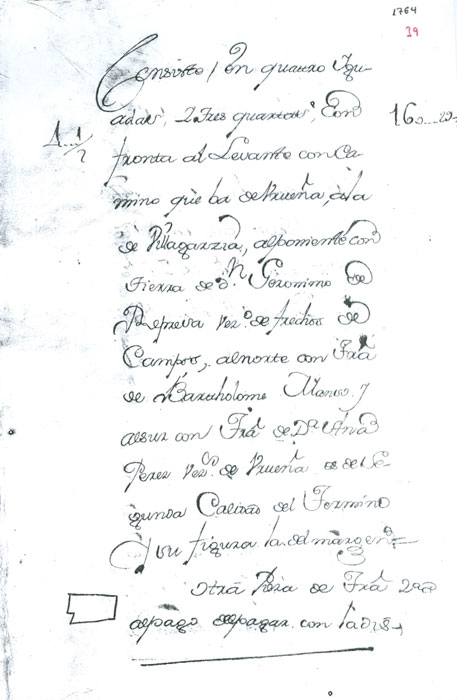 1764
39
Consiste / En quatro Ygu-
adas, 2 tres quartas, Con
1 1/2
160
fronta al Levante con Ca
mino que ba de Urueña, a la
de Villagarzia, al poniente con
tierra de Dn. Geronimo de
Pereira vezo. de frechos de
Campos, al norte con trrâ
de Bartholome Alonso, y
al sur con trrâ de Dª Ana
Perez Vezª de Urueña es de Se
gunda Calidad del Termino
y su figura la del margen
Otra Pieza de trrâ
al pago de con la dis